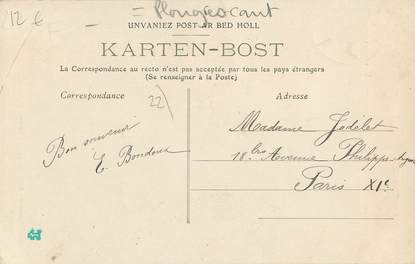 12 €
= Plougrescant
UNVANIEZ POST AR BED HOLL
KARTEN-BOST
La Correspondance au recto n'est pas acceptée par tous les pays étrangers
(Se renseigner à la Poste)
Correspondance
22)
Adresse
Bon souvenir
E. Bondoux
Madame Jodelet
18 bis Avenue Philippe Auguste
Paris XIe